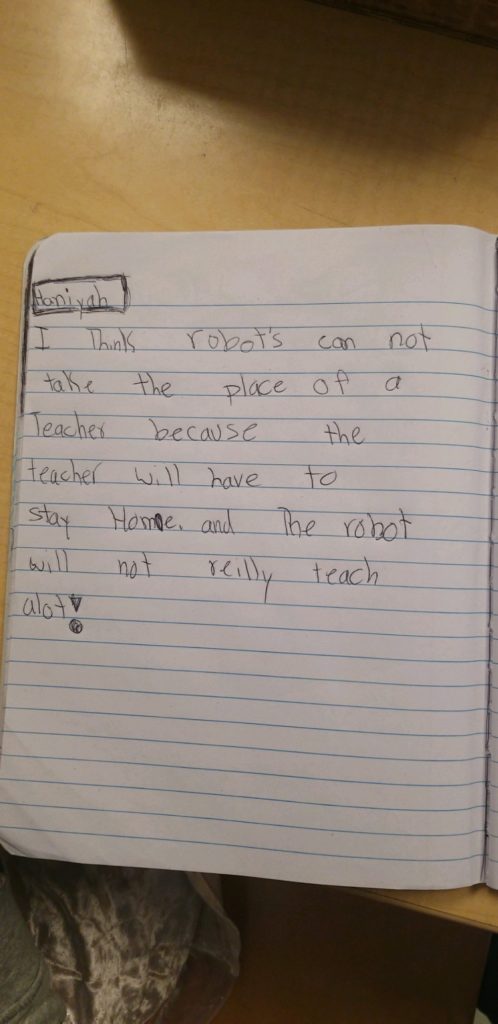 Haniyah
I Think robot's can not
take the place of a
Teacher because the
teacher will have to
stay Home. and The robot
will not reilly teach
alot!